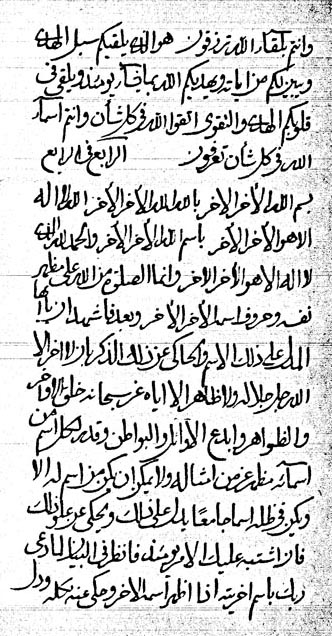 وانتم بلقاء الله ترزقون هو الذي يلقيكم سبل الهدى
ويبين لكم من اياته ويهديكم الله بما شاء يومئذ ويلقي في
قلوبكم الهدى والتقوى اتقوا الله في كل شأن وانتم اسماء
الله في كل شأن تعرفون الرابع في الرابع
بسم الله الأخر الاخر بالله الله الأخر الأخر الله لا اله
الا هو الأخر الأخر باسم الله الأخر الأخر والحمد لله الذي
لا اله الا هو الأخر الاخر وانما الصلوة من الله على مظهر
نفسه وحروف اسم الأخر الأخر وبعد فاشهد ان يا ايها
الملك على ذلك الاسم والحاكي عن ذلك الذكر بان لا اخر الا
الله جل جلاله ولا ظاهر الا اياه عز سبحانه خلق الاواخر
والظواهر وابدع الاوائل والبواطن وقدر لكل اسم من
اسمائه مظهر عز من امثاله ولا يمكن ان يكن من اسم له الا
ويكن في ظله اسما جامعا يدل على ذلك ويحكي عن علو ذلك
فان اشتبه عليك الامر يومئذ فانظر في البيان لمبادئ
ربك باسم اخريته اذا اظهر اسمه الاخر وحكى عنه حكمه ودل